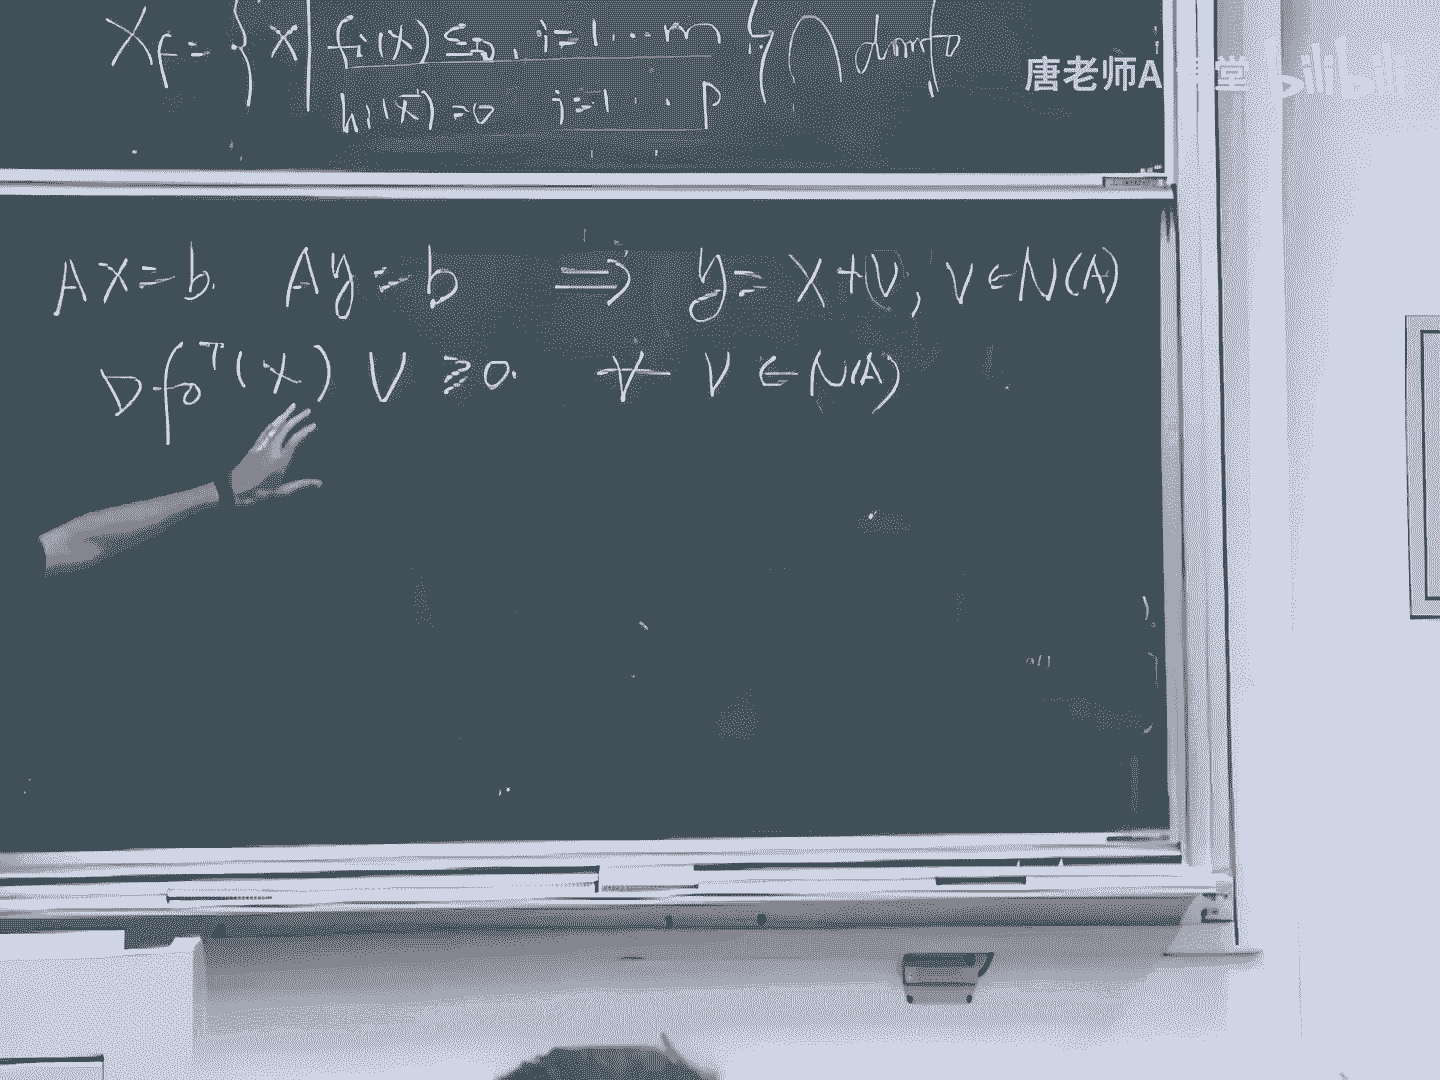 X_f = { x | f_i(x) ≤ 0, i=1...m } ∩ dom f_0
h_i(x) = 0 i=1...p
唐老师A 堂 bilibili
Ax=b. Ay=b ⇒ y=x+v, v∈N(A)
∇f_0^T(x) v ≥0. ∀ v∈N(A)